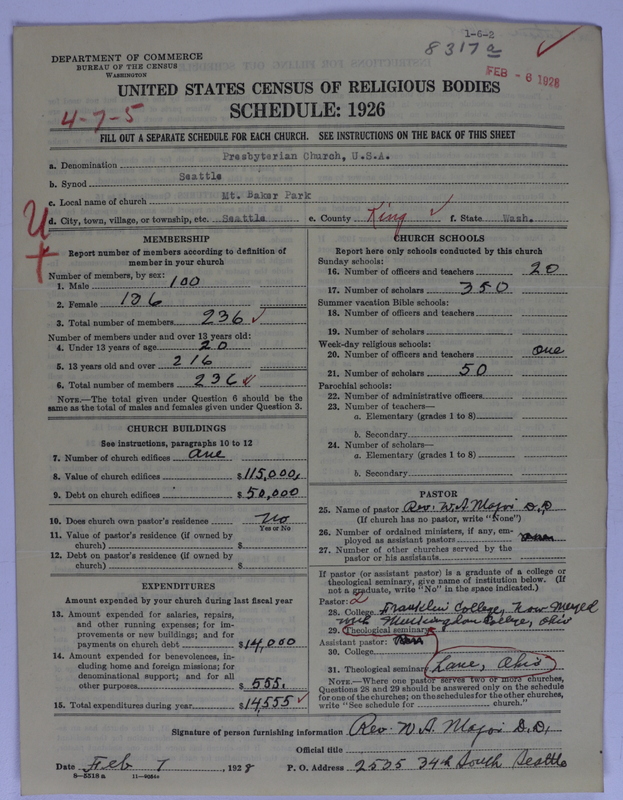 1-6-2
8317a
DEPARTMENT OF COMMERCE
BUREAU OF THE CENSUS
WASHINGTON
FEB - 6 1928
UNITED STATES CENSUS OF RELIGIOUS BODIES
SCHEDULE: 1926
4-7-5
FILL OUT A SEPARATE SCHEDULE FOR EACH CHURCH. SEE INSTRUCTIONS ON THE BACK OF THIS SHEET
a. Denomination Presbyterian Church, U.S.A.
b. Synod Seattle
c. Local name of church Mt. Baker Park
d. City, town, village, or township, etc. Seattle e. County King f. State Wash.
U
MEMBERSHIP
Report number of members according to definition of
member in your church
Number of members, by sex:
1. Male 100
2. Female 136
3. Total number of members 236
Number of members under and over 13 years old:
4. Under 13 years of age 20
5. 13 years old and over 216
6. Total number of members 236
NOTE.—The total given under Question 6 should be
same as the total of males and females given under Question 3.
CHURCH BUILDINGS
See instructions, paragraphs 10 to 12
7. Number of church edifices one
8. Value of church edifices $115,000
9. Debt on church edifices $50,000
10. Does church own pastor's residence No
Yes or No
11. Value of pastor's residence (if owned by
church) $
12. Debt on pastor's residence (if owned by
church) $
EXPENDITURES
Amount expended by your church during last fiscal year
13. Amount expended for salaries, repairs,
and other running expenses; for im-
provements or new buildings; and for
payments on church debt $14,000
14. Amount expended for benevolences, in-
cluding home and foreign missions; for
denominational support; and for all
other purposes $555.
15. Total expenditures during year $14,555
CHURCH SCHOOLS
Report here only schools conducted by this church
Sunday schools:
16. Number of officers and teachers 20
17. Number of scholars 350
Summer vacation Bible schools:
18. Number of officers and teachers
19. Number of scholars
Week-day religious schools:
20. Number of officers and teachers one
21. Number of scholars 50
Parochial schools:
22. Number of administrative officers
23. Number of teachers—
a. Elementary (grades 1 to 8)
b. Secondary
24. Number of scholars—
a. Elementary (grades 1 to 8)
b. Secondary
PASTOR
25. Name of pastor Rev. W. A. Major D.D
(If church has no pastor, write "None")
26. Number of ordained ministers, if any, em-
ployed as assistant pastors
27. Number of other churches served by the
pastor or his assistants
If pastor (or assistant pastor) is a graduate of a college or
theological seminary, give name of institution below. (If
not a graduate, write "No" in the space indicated.)
Pastor: 2
28. College Franklin College, Now Merged
with Muskingdon College, Ohio
29. Theological seminary
Assistant pastor:
30. College
31. Theological seminary Lane, Ohio
NOTE.—Where one pastor serves two or more churches,
Questions 28 and 29 should be answered only on the schedule
for one of the churches; on the schedules for the other churches
write "See schedule for church."
Signature of person furnishing information Rev. W. A. Major D.D.
Official title
Date Feb 1, 1928 P. O. Address 2535 34th South Seattle
8—5518 a 11—9064a